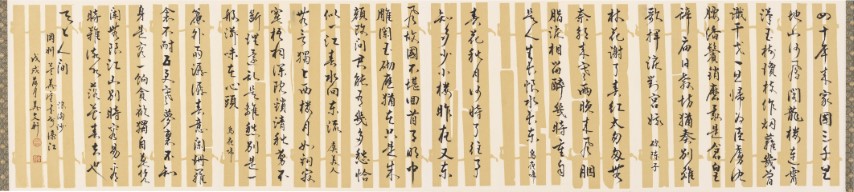 四十年來家國三千里
地山河鳳閣龍樓連霄
漢玉樹瓊枝作烟蘿幾曾
識干戈一旦歸為臣虜沈
腰潘鬢消磨最是倉皇
辭廟日教坊猶奏別離
歌揮淚對宮娥 破陣子
林花謝了春紅太匆匆無
奈朝來寒雨晚來風胭
脂淚相留醉幾時重自
是人生長恨水長東 烏夜啼
春花秋月何時了往事
知多少小樓昨夜又東
風故國不堪回首月明中
雕闌玉砌應猶在只是朱
顏改問君能有幾多愁恰
似一江春水向東流 虞美人
無言獨上西樓月如鉤寂
寞梧桐深院鎖清秋剪不
斷理還亂是離愁別是一
般滋味在心頭 烏夜啼
簾外雨潺潺春意闌珊羅
衾不耐五更寒夢裏不知
身是客一餉貪歡獨自莫憑
闌無限江山別時容易見
時難流水落花春去也
天上人間 浪淘沙
岡州 書於濠江
戊戌